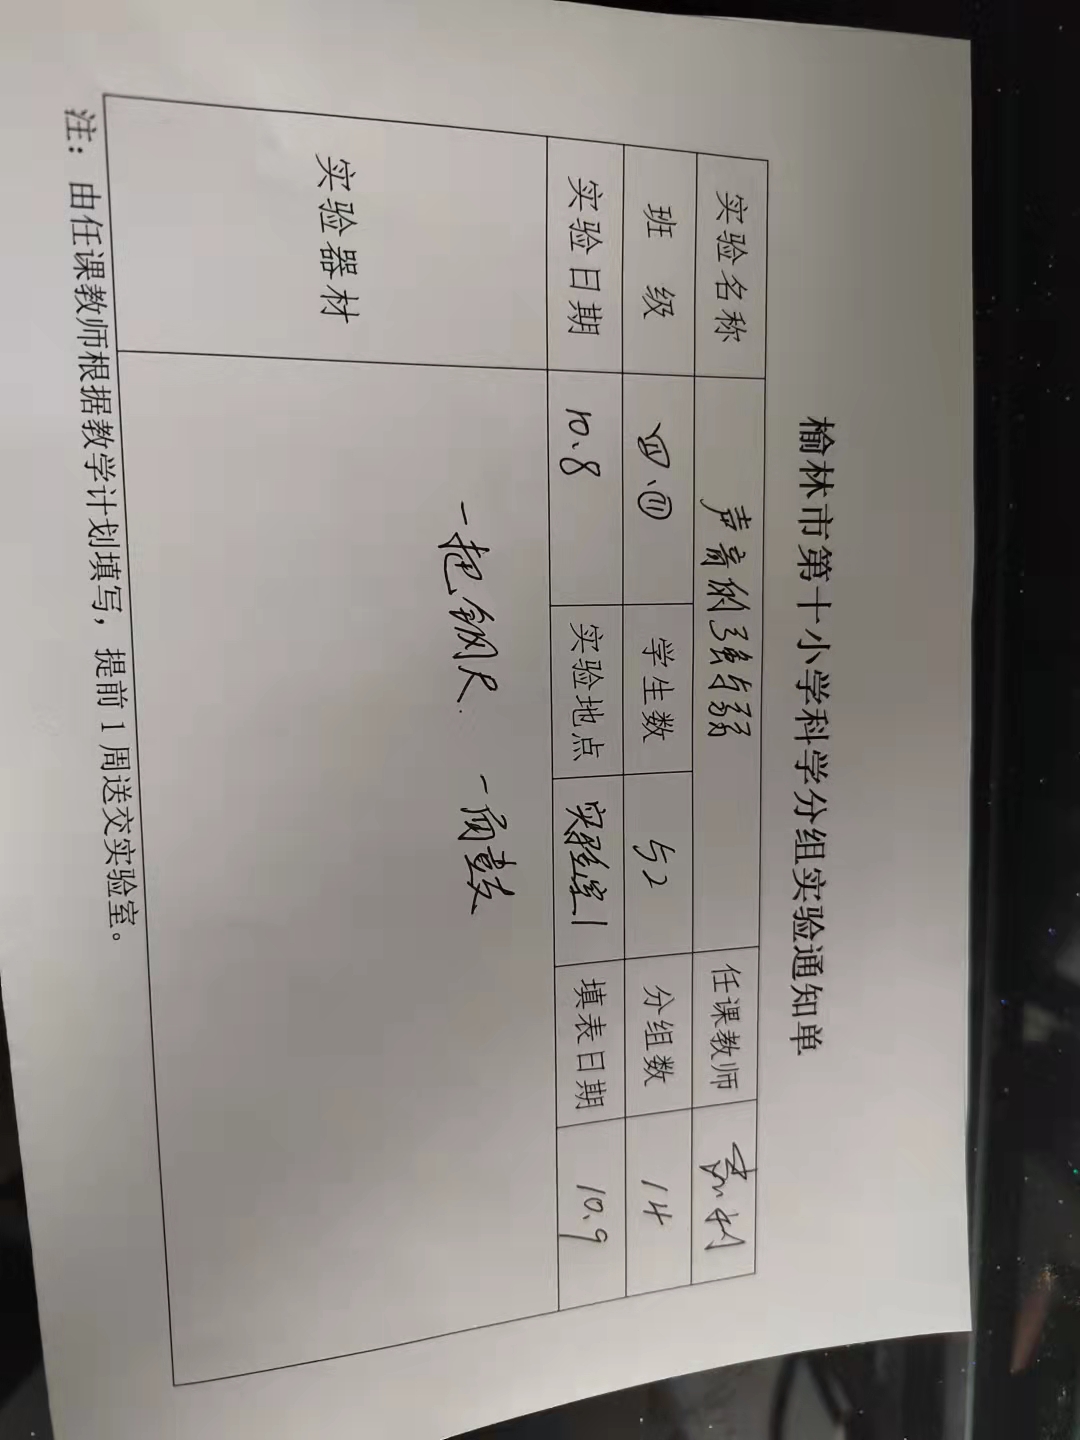 榆林市第十小学科学分组实验通知单
实验名称 声音的强与弱 任课教师
班 级 四.⑪ 学生数 52 分组数 14
实验日期 10.8 实验地点 实验室1 填表日期 10.9
实验器材 一把钢尺. 一面鼓
注：由任课教师根据教学计划填写，提前1周送交实验室。